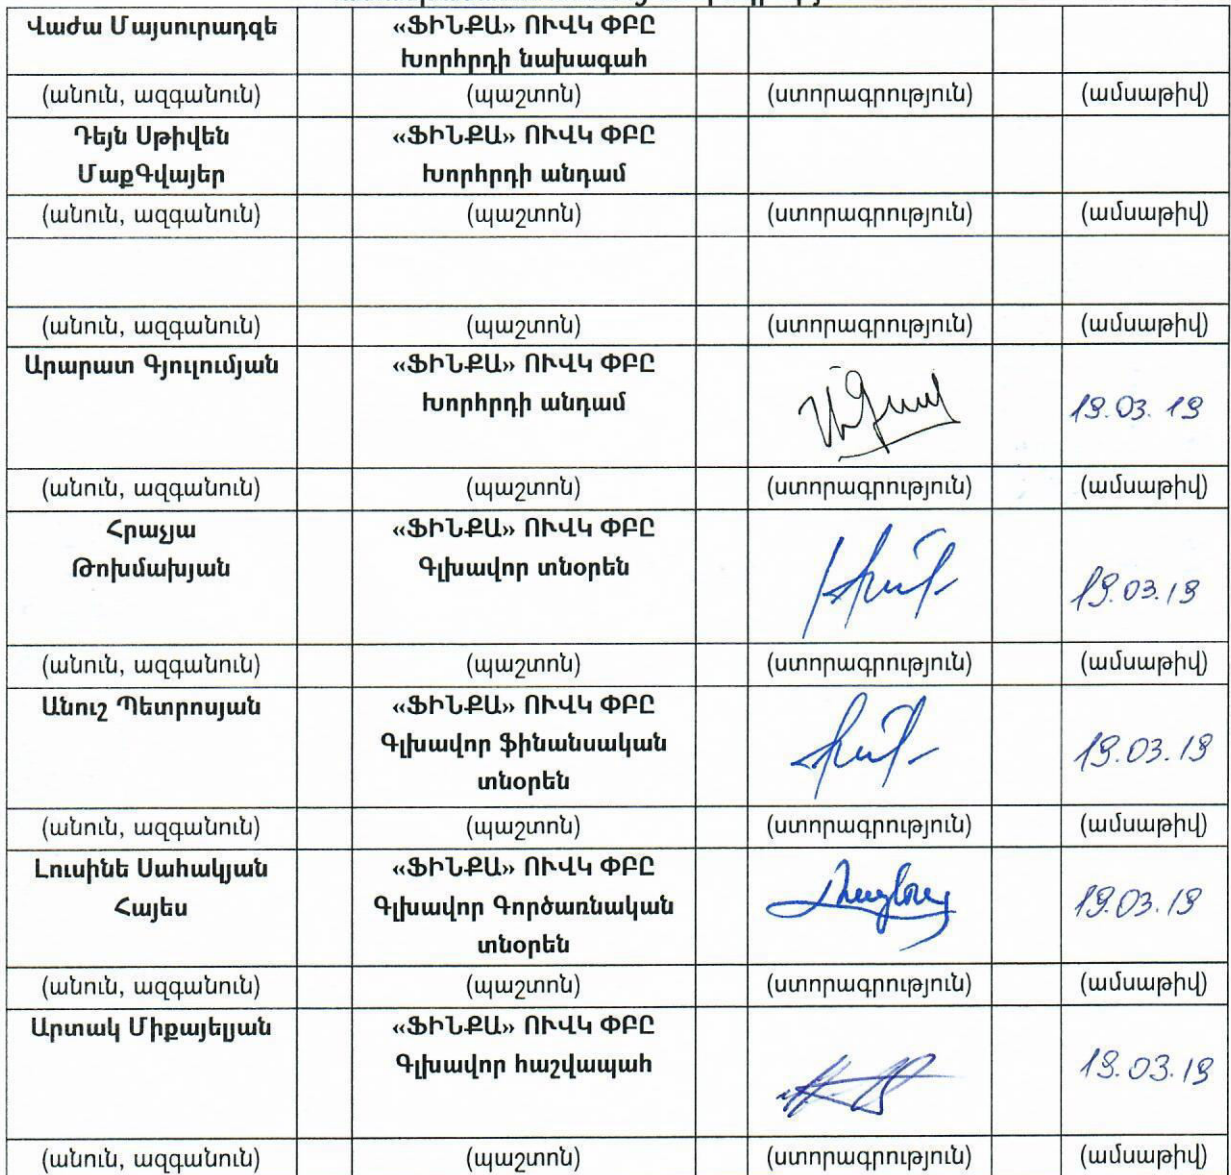 Վաժա Մայսուրադզե «ՖԻՆՔԱ» ՈՒՎԿ ՓԲԸ
Խորհրդի նախագահ
(անուն, ազգանուն) (պաշտոն) (ստորագրություն) (ամսաթիվ)
Դեյն Սթիվեն «ՖԻՆՔԱ» ՈՒՎԿ ՓԲԸ
ՄաքԳվայեր Խորհրդի անդամ
(անուն, ազգանուն) (պաշտոն) (ստորագրություն) (ամսաթիվ)
(անուն, ազգանուն) (պաշտոն) (ստորագրություն) (ամսաթիվ)
Արարատ Գյուլումյան «ՖԻՆՔԱ» ՈՒՎԿ ՓԲԸ
Խորհրդի անդամ 19.03.19
(անուն, ազգանուն) (պաշտոն) (ստորագրություն) (ամսաթիվ)
Հրաչյա «ՖԻՆՔԱ» ՈՒՎԿ ՓԲԸ
Թոխմախյան Գլխավոր տնօրեն 19.03.19
(անուն, ազգանուն) (պաշտոն) (ստորագրություն) (ամսաթիվ)
Անուշ Պետրոսյան «ՖԻՆՔԱ» ՈՒՎԿ ՓԲԸ
Գլխավոր ֆինանսական 19.03.19
տնօրեն
(անուն, ազգանուն) (պաշտոն) (ստորագրություն) (ամսաթիվ)
Լուսինե Սահակյան «ՖԻՆՔԱ» ՈՒՎԿ ՓԲԸ
Հայես Գլխավոր Գործառնական 19.03.19
տնօրեն
(անուն, ազգանուն) (պաշտոն) (ստորագրություն) (ամսաթիվ)
Արտակ Միքայելյան «ՖԻՆՔԱ» ՈՒՎԿ ՓԲԸ
Գլխավոր հաշվապահ 19.03.19
(անուն, ազգանուն) (պաշտոն) (ստորագրություն) (ամսաթիվ)